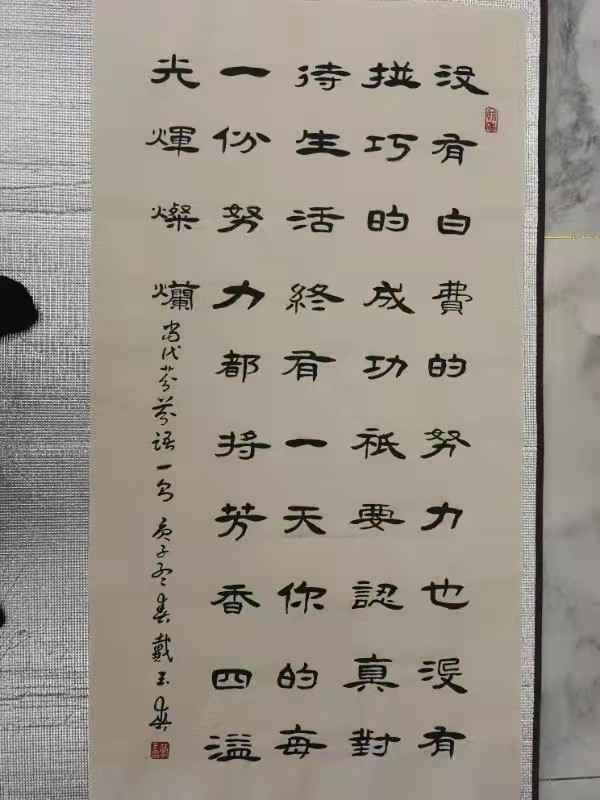 没有白費的努力也没有
掽巧的成功祇要認真對
待生活終有一天你的每
一份努力都将芳香四溢
光煇燦爛
当代芬芬語一句 庚子冬 戴玉